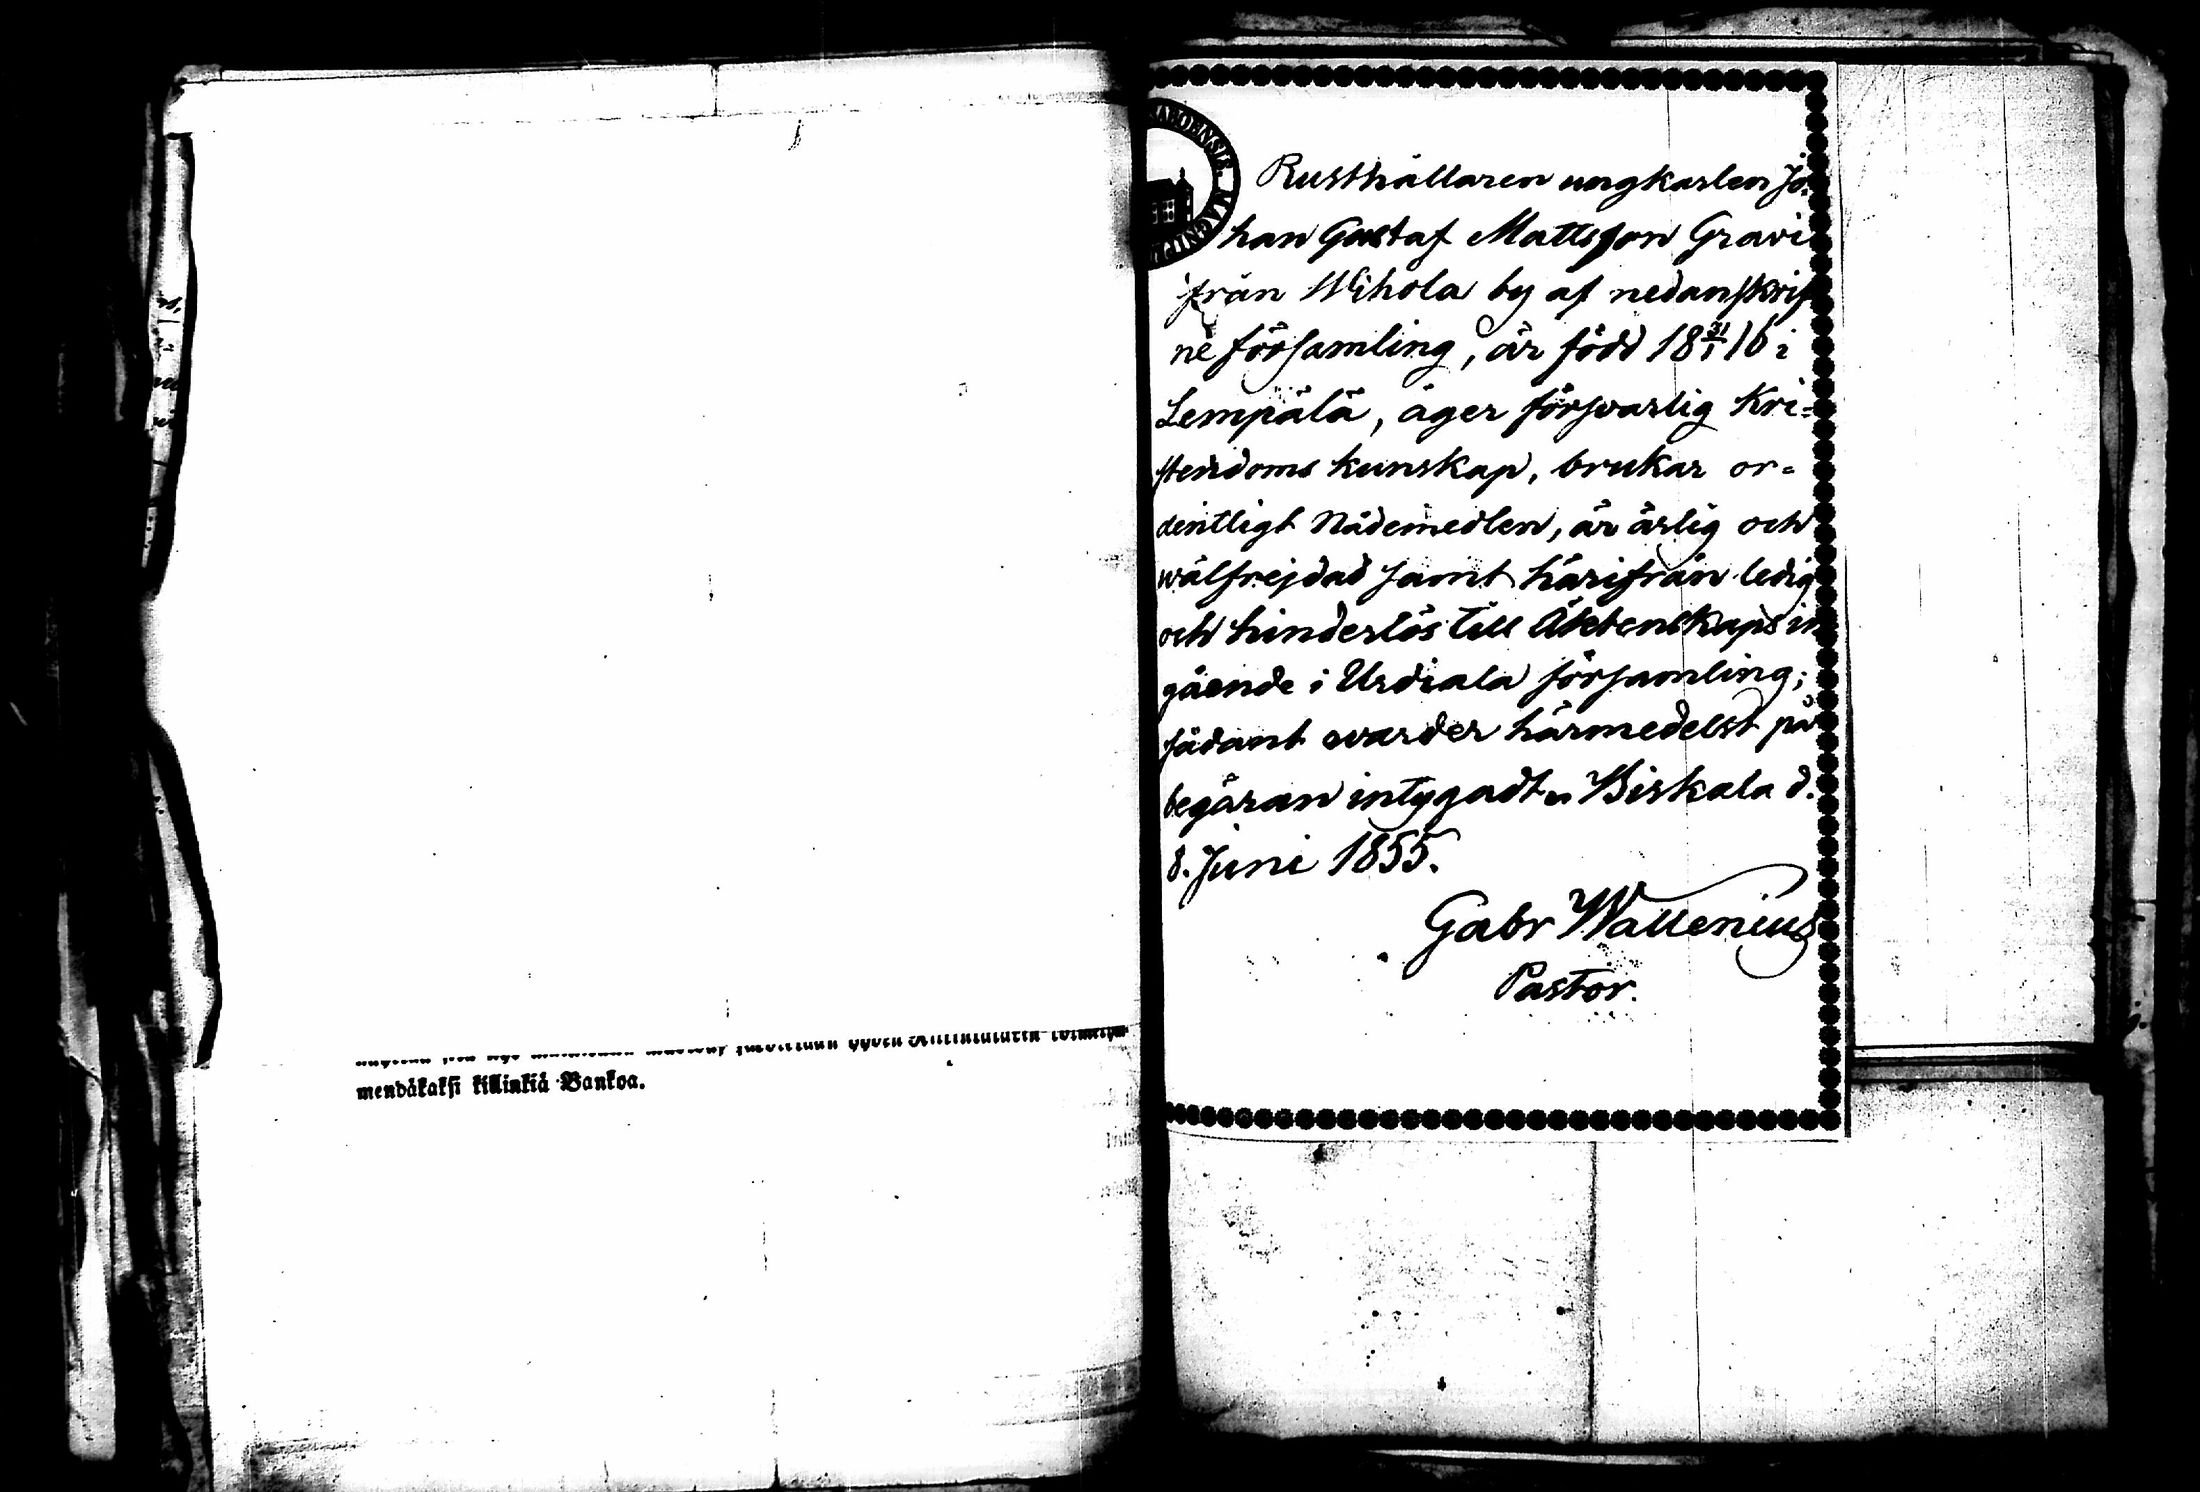 mendäkaksi killinkiä Bankoa.
ABOENSIS. MAGNI PR
Rusthållaren ungkarlen Jo-
han Gustaf Mattsson Gravi
från Wihola by af nedanskrif
ne församling, är född 18 31/1 16 i
Lempälä, äger försvarlig Kri-
stendoms kunskap, brukar or-
dentligt Nådemedlen, är ärlig och
wälfrejdad samt härifrån ledig
och hinderlös till Äktenskaps in
gående i Urdiala församling;
sådant warder härmedelst på
begäran intygadt. Birkala d.
8. Juni 1855.
Gabr Wallenius
Pastor.